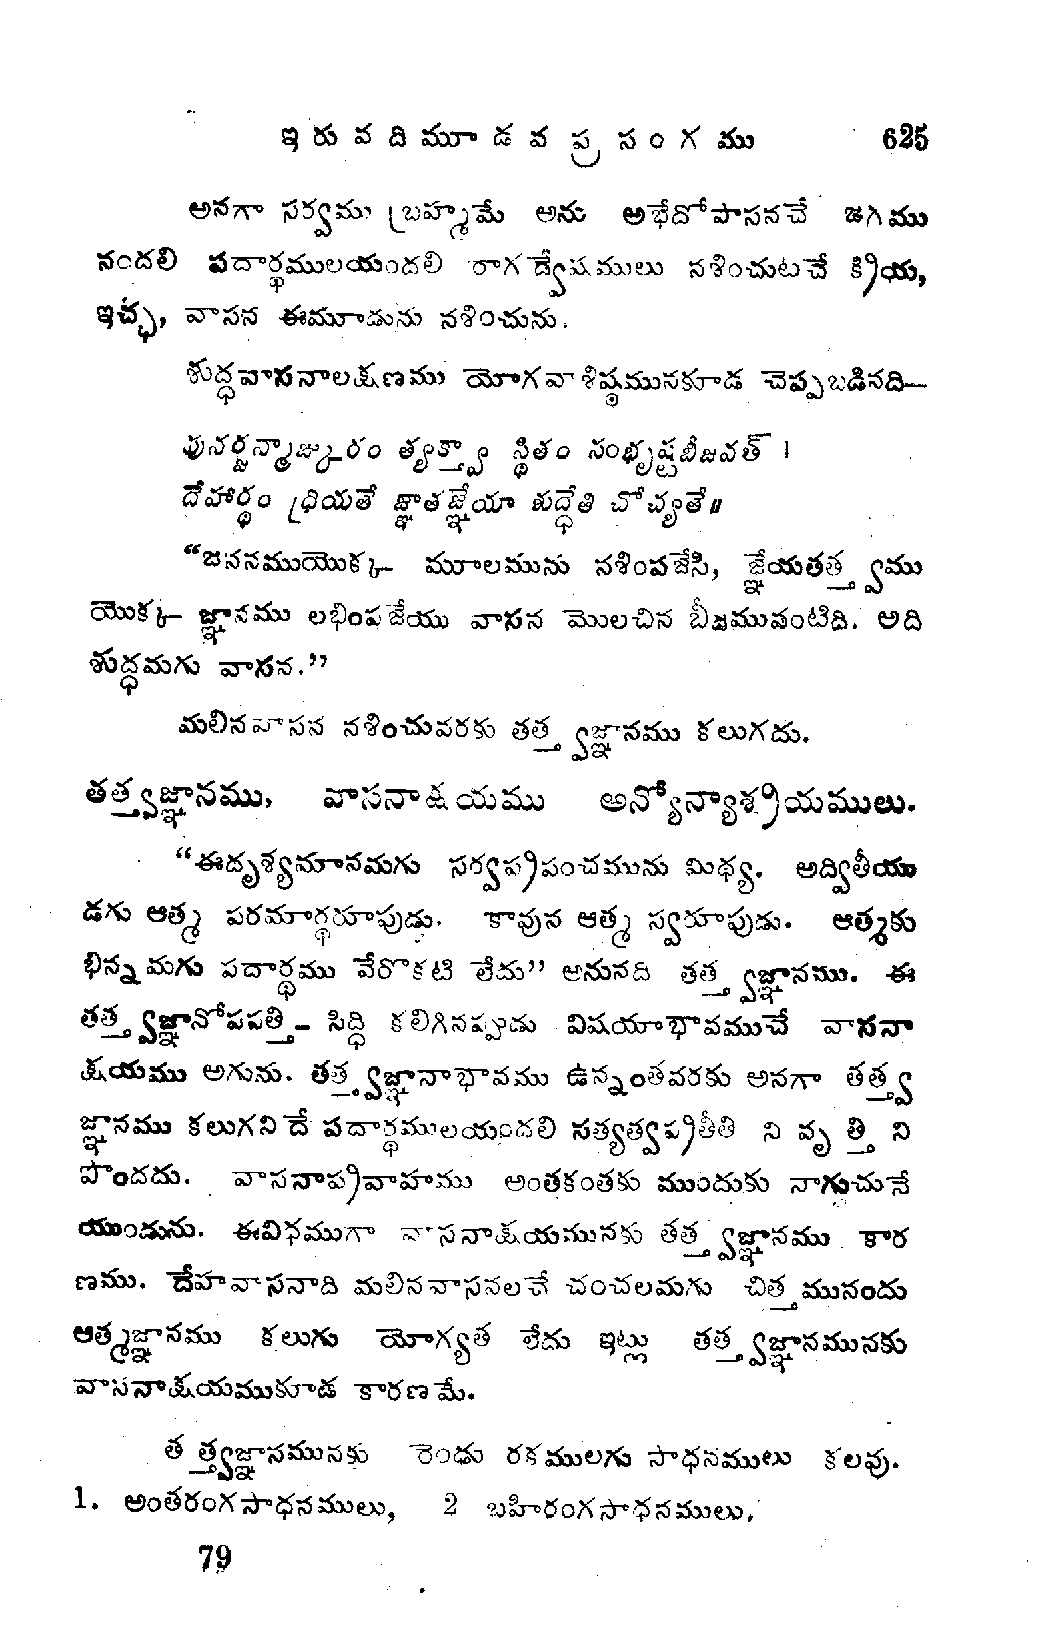 ఇరువదిమూడవ ప్రసంగము 625
అనగా సర్వము బ్రహ్మమే అను అభేదోపాసనచే జగము
నందలి పదార్థములయందలి రాగద్వేషములు నశించుటచే క్రియ,
ఇచ్ఛ, వాసన ఈమూడును నశించును.
శుద్ధవాసనాలక్షణము యోగవాశిష్ఠమునకూడ చెప్పబడినది—
పునర్జన్మాఙ్కురం త్యక్త్వా స్థితం సంభృష్టబీజవత్ ।
దేహార్థం ధ్రియతే జ్ఞాతజ్ఞేయా శుద్ధేతి చోచ్యతే॥
“జననముయొక్క మూలమును నశింపజేసి, జ్ఞేయతత్త్వము
యొక్క జ్ఞానము లభింపజేయు వాసన మొలచిన బీజమువంటిది. అది
శుద్ధమగు వాసన.”
మలినవాసన నశించువరకు తత్త్వజ్ఞానము కలుగదు.
తత్త్వజ్ఞానము, వాసనాక్షయము అన్యోన్యాశ్రయములు.
“ఈదృశ్యమానమగు సర్వప్రపంచమును మిథ్య. అద్వితీయు
డగు ఆత్మ పరమార్థరూపుడు. కావున ఆత్మ స్వరూపుడు. ఆత్మకు
భిన్నమగు పదార్థము వేరొకటి లేదు” అనునది తత్త్వజ్ఞానము. ఈ
తత్త్వజ్ఞానోపపత్తి- సిద్ధి కలిగినప్పుడు విషయాభావముచే వాసనా
క్షయము అగును. తత్త్వజ్ఞానాభావము ఉన్నంతవరకు అనగా తత్త్వ
జ్ఞానము కలుగనిదే పదార్థములయందలి సత్యత్వప్రతీతి నివృత్తిని
పొందదు. వాసనాప్రవాహము అంతకంతకు ముందుకు సాగుచునే
యుండును. ఈవిధముగా వాసనాక్షయమునకు తత్త్వజ్ఞానము కార
ణము. దేహవాసనాది మలినవాసనలచే చంచలమగు చిత్తమునందు
ఆత్మజ్ఞానము కలుగు యోగ్యత లేదు ఇట్లు తత్త్వజ్ఞానమునకు
వాసనాక్షయముకూడ కారణమే.
తత్త్వజ్ఞానమునకు రెండు రకములగు సాధనములు కలవు.
1. అంతరంగసాధనములు, 2 బహిరంగసాధనములు.
79